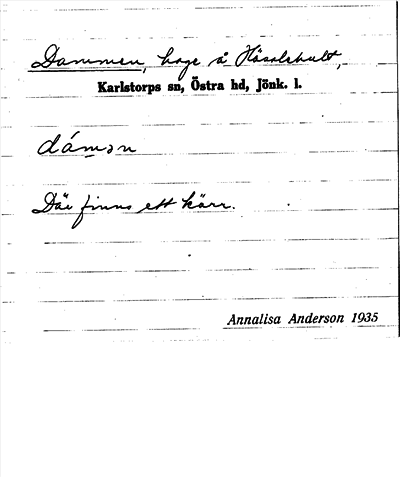 Dammen, hage å Häsalshult,
Karlstorps sn, Östra hd, Jönk. l.
dámən
Där finns ett kärr.
Annalisa Anderson 1935